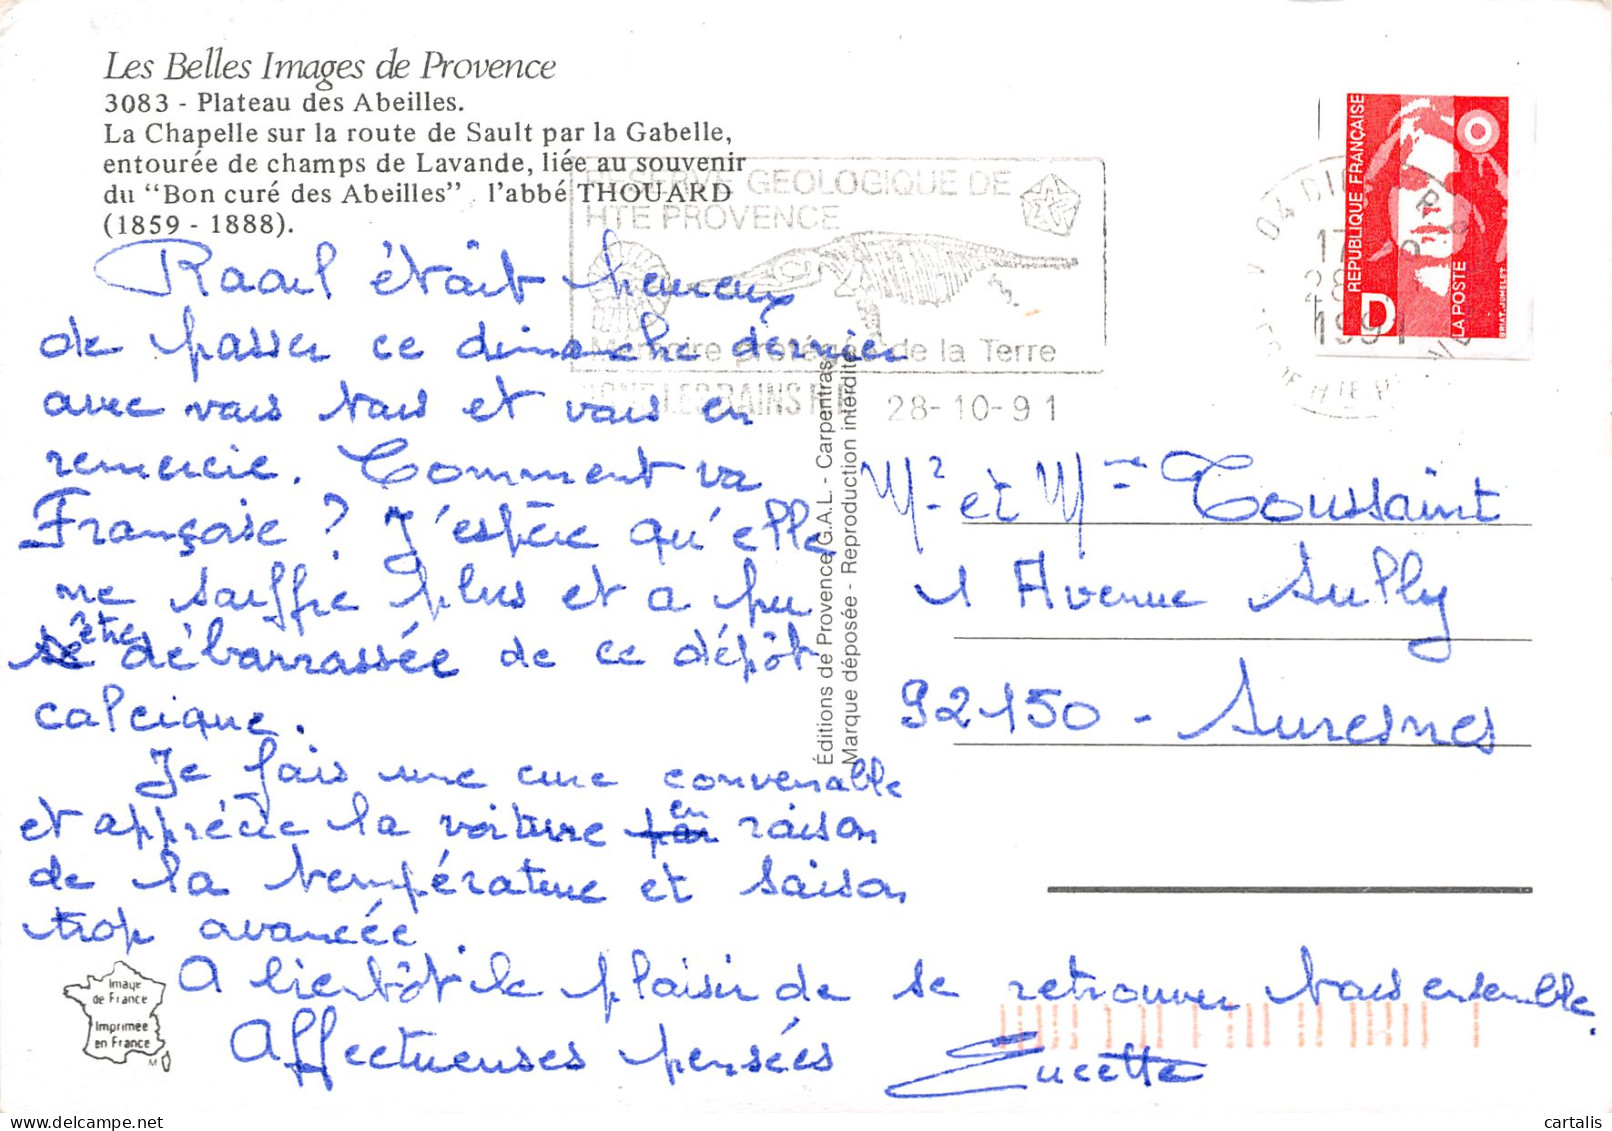 Les Belles Images de Provence
3083 - Plateau des Abeilles.
La Chapelle sur la route de Sault par la Gabelle,
entourée de champs de Lavande, liée au souvenir
du "Bon curé des Abeilles" l'abbé THOUARD
(1859 - 1888).
RESERVE GEOLOGIQUE DE
HTE PROVENCE
Mémoire protégée de la Terre
28-10-91
04 DIGNE
17
28
1991
REPUBLIQUE FRANÇAISE
LA POSTE
D
BRIAT-JUMELET
Raoul était heureux
de passer ce dimanche dernier
avec vous tous et vous en
remercie. Comment va
Françoise ? J'espère qu'elle
ne souffre plus et a pu
être débarrassée de ce dépôt
calcique.
Je fais une cure convenable
et apprécie la voiture en raison
de la température et saison
trop avancée.
A bientôt le plaisir de se retrouver tous ensemble.
Affectueuses pensées Lucette
Éditions de Provence G.A.L. - Carpentras
Marque déposée - Reproduction interdite
Mr et Mme Toussaint
1 Avenue Sully
92150 - Suresnes
Image
de France
Imprimée
en France
delcampe.net
cartalis